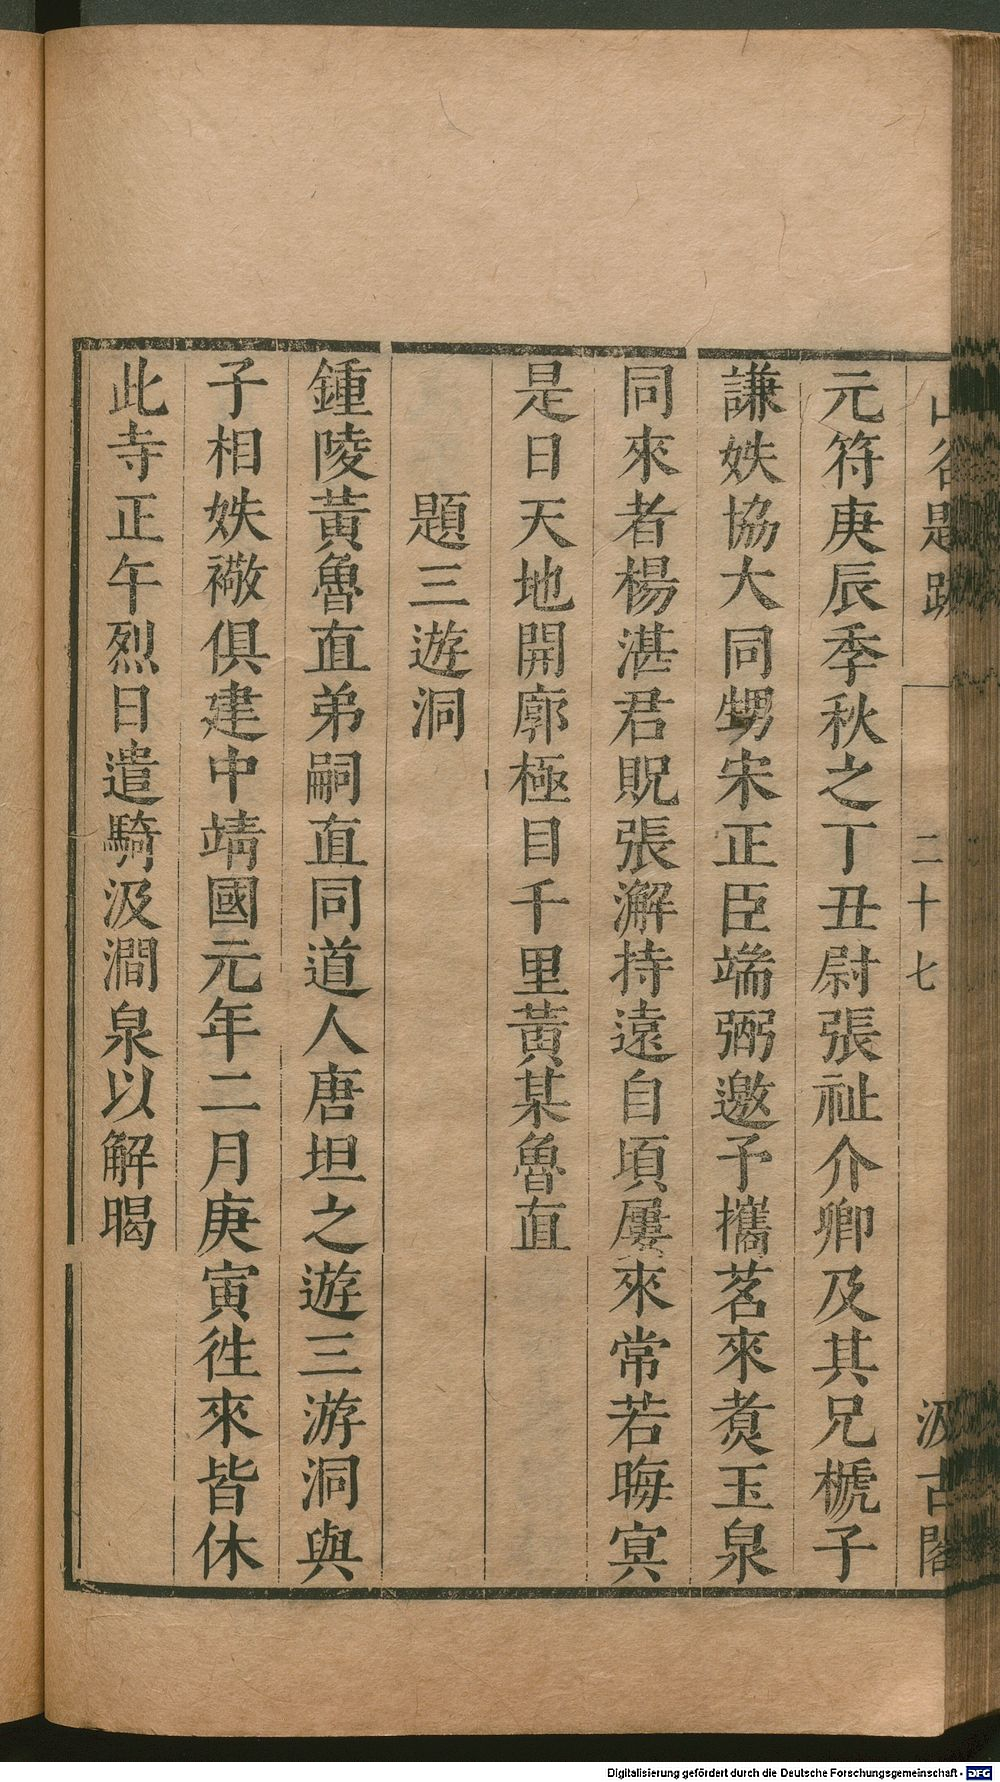 山谷題跋 二十七 汲古閣
元符庚辰季秋之丁丑尉張祉介卿及其兄榹子
謙姪協大同甥宋正臣端弼邀予攜茗來煑玉泉
同來者楊湛君貺張澥持遠自頃屢來常若晦𡨋
是日天地開廓極目千里黃某魯直
題三遊洞
鍾陵黃魯直弟嗣直同道人唐坦之遊三游洞與
子相姪䙗俱建中靖國元年二月庚寅徃來皆休
此寺正午烈日遣騎汲澗泉以解暍
Digitalisierung gefördert durch die Deutsche Forschungsgemeinschaft - DFG